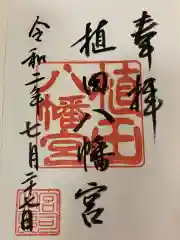 奉拝
植田八幡宮
令和二年七月二十七日
植田
八幡宮